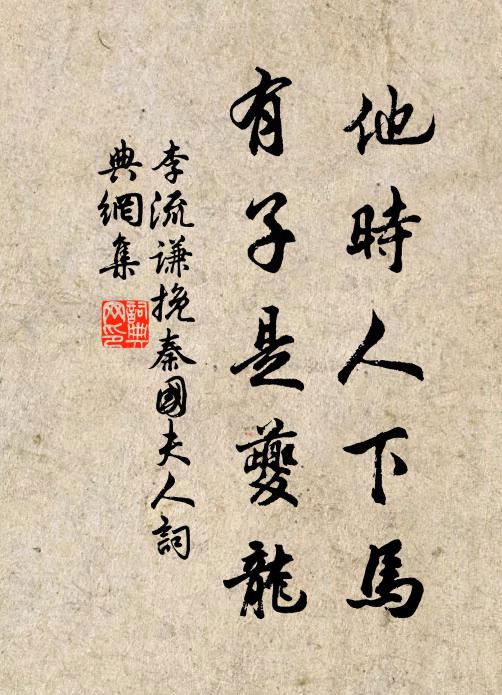 他時人下馬
有子是夔龍
李流謙挽秦國夫人詞
典網集
詞典網印